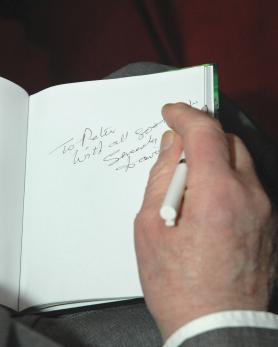 To Peter
With all good
Sincerely